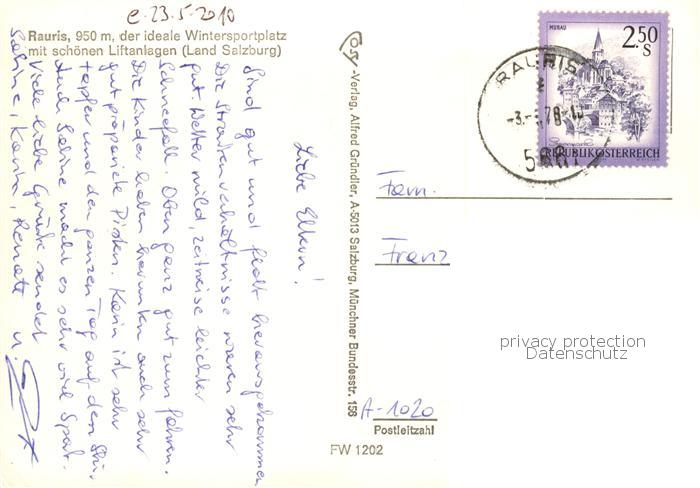 e. 23.5.2010
Rauris, 950 m, der ideale Wintersportplatz
mit schönen Liftanlagen (Land Salzburg)
Liebe Eltern!
Sind gut und flott heraufgekommen
Die Straßenverhältnisse waren sehr
gut. Wetter mild, zeitweise leichter
Schneefall. Oben ganz gut zum fahren.
Die Kinder haben herunten auch sehr
gut präparierte Pisten. Karin ist sehr
tapfer und den ganzen Tag auf den Ski.
Auch Sabine macht es sehr viel Spaß.
Viele liebe Grüße sendet
Sabine, Karin, Renate u.
-Verlag, Alfred Gründler, A-5013 Salzburg, Münchner Bundesstr. 156
MURAU
2.50
S
REPUBLIK ÖSTERREICH
RAURIS
Fam.
Franz
privacy protection
Datenschutz
A-1020
Postleitzahl
FW 1202